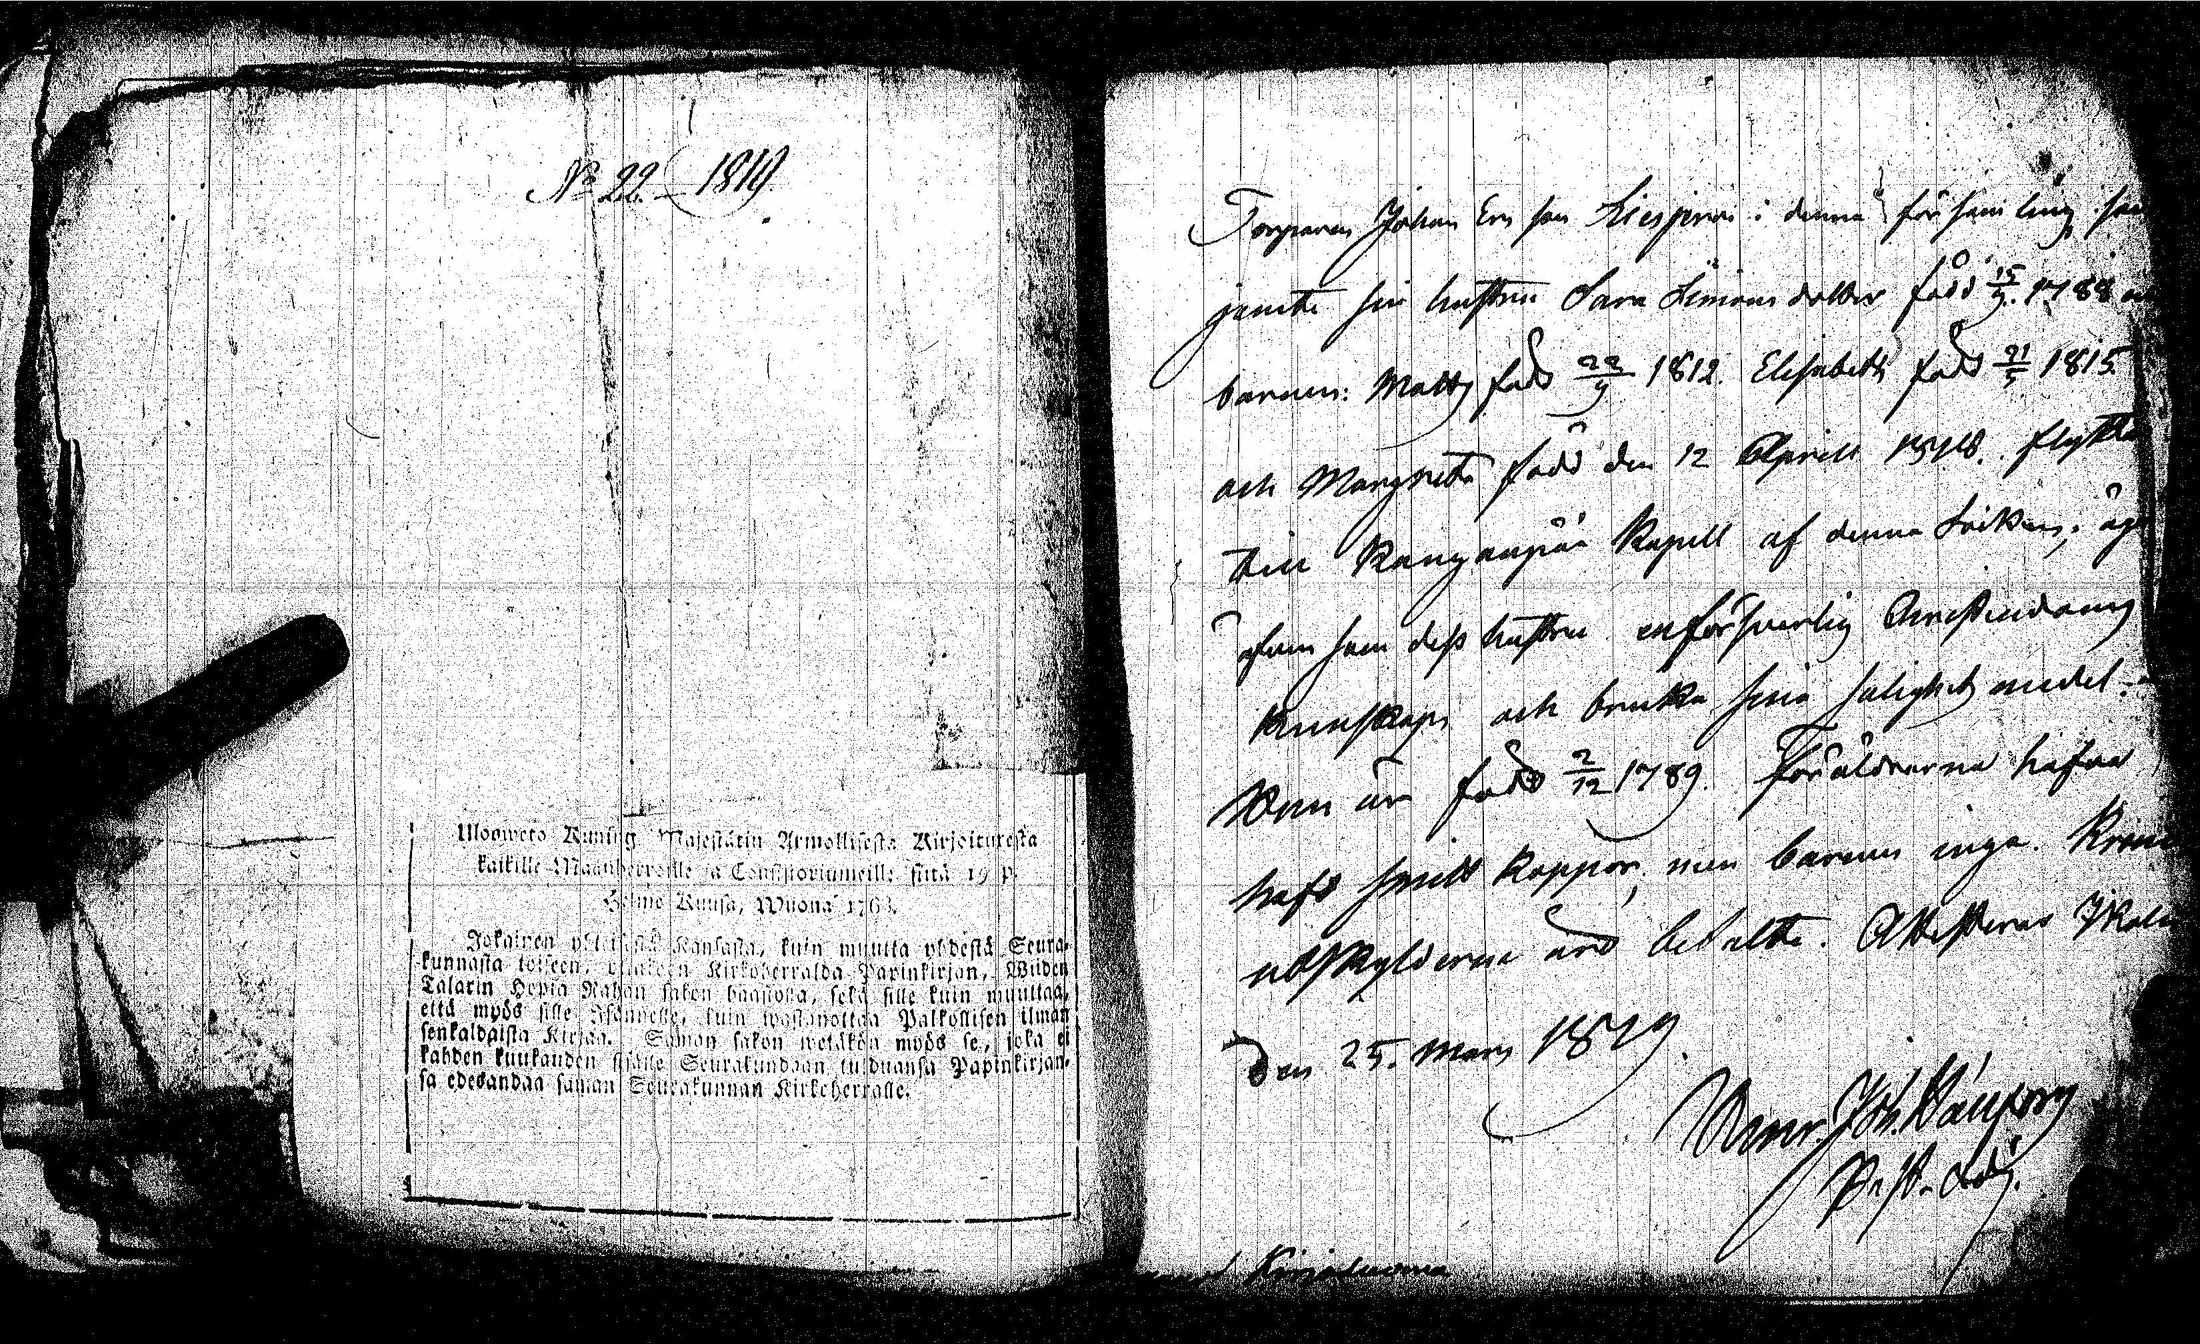 No 22. 1819.
Ulosweto Kuning. Majestätin Armollisesta Kirjoituresta
kaikille Maanherroille ja Consistoriumeille, siitä 19 p.
Helmi Kuusa, Wuonna 176
Jokainen yhteisestä Kansasta, kuin muutta yhdestä Seura-
kunnasta toiseen, Kirkoherralda Papinkirjan, Wiiden
Talarin Hopia Rahan sakon haastolla, sekä sille kuin muuttaa,
että myös sille Isännelle, kuin wastanottaa Palkollisen ilman
senkaldaista Kirjaa. Saman sakon wetäkön myös se, joka ei
kahden kuukauden sisälle Seurakundaan tulduansa Papinkirjan-
sa edesandaa saman Seurakunnan Kirkcherralle.
Torparen Johan Ers son i denna församling, som
jemte sin hustru Sara Simons dotter född 15/9. 1788 och
barnen: Matts född 22/9 1812. Elisabeth född 21/5 1815
och Margreta född den 12 Aprill 1818. flytta
till Kangaspää Kapell af denna Sokn, äger
som dess hustru en försvarlig Christendoms
kunskap, och bruka sina salighets medel.
Han är född 2/12 1789. Föräldrarna hafva
haft smitt koppor, men barnen inga. Krono
utskylderna äro betalte. Attesteras Ikalis
den 25. Mars 1819.
Joh.
Past. Adj.